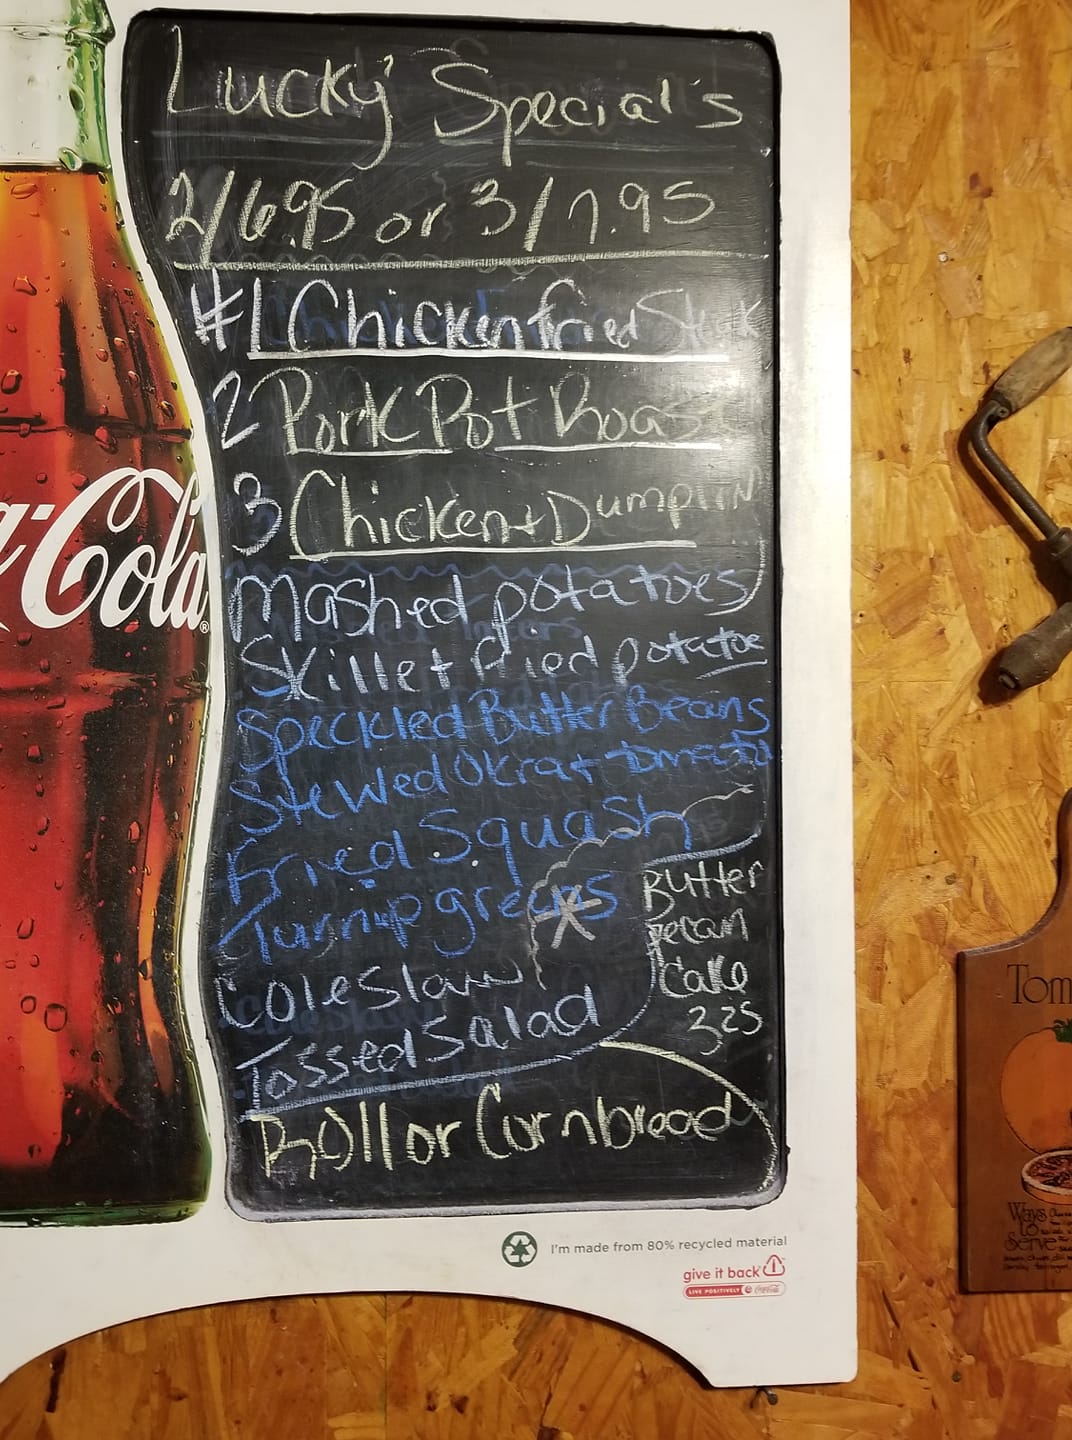 Lucky Special's
2/6.95 or 3/7.95
#1 Chicken fried Steak
2 Pork Pot Roast
3 Chicken + Dumplin
Mashed potatoes
Skillet fried potatoe
Speckled Butter Beans
Stewed Okra + tomato
Fried Squash
Turnip greens
Cole Slaw
Tossed Salad
Butter
pecan
Cake
3.25
Roll or Cornbread
Coca-Cola®
I'm made from 80% recycled material
give it back
LIVE POSITIVELY Coca-Cola
Tom
Ways
to
Serve